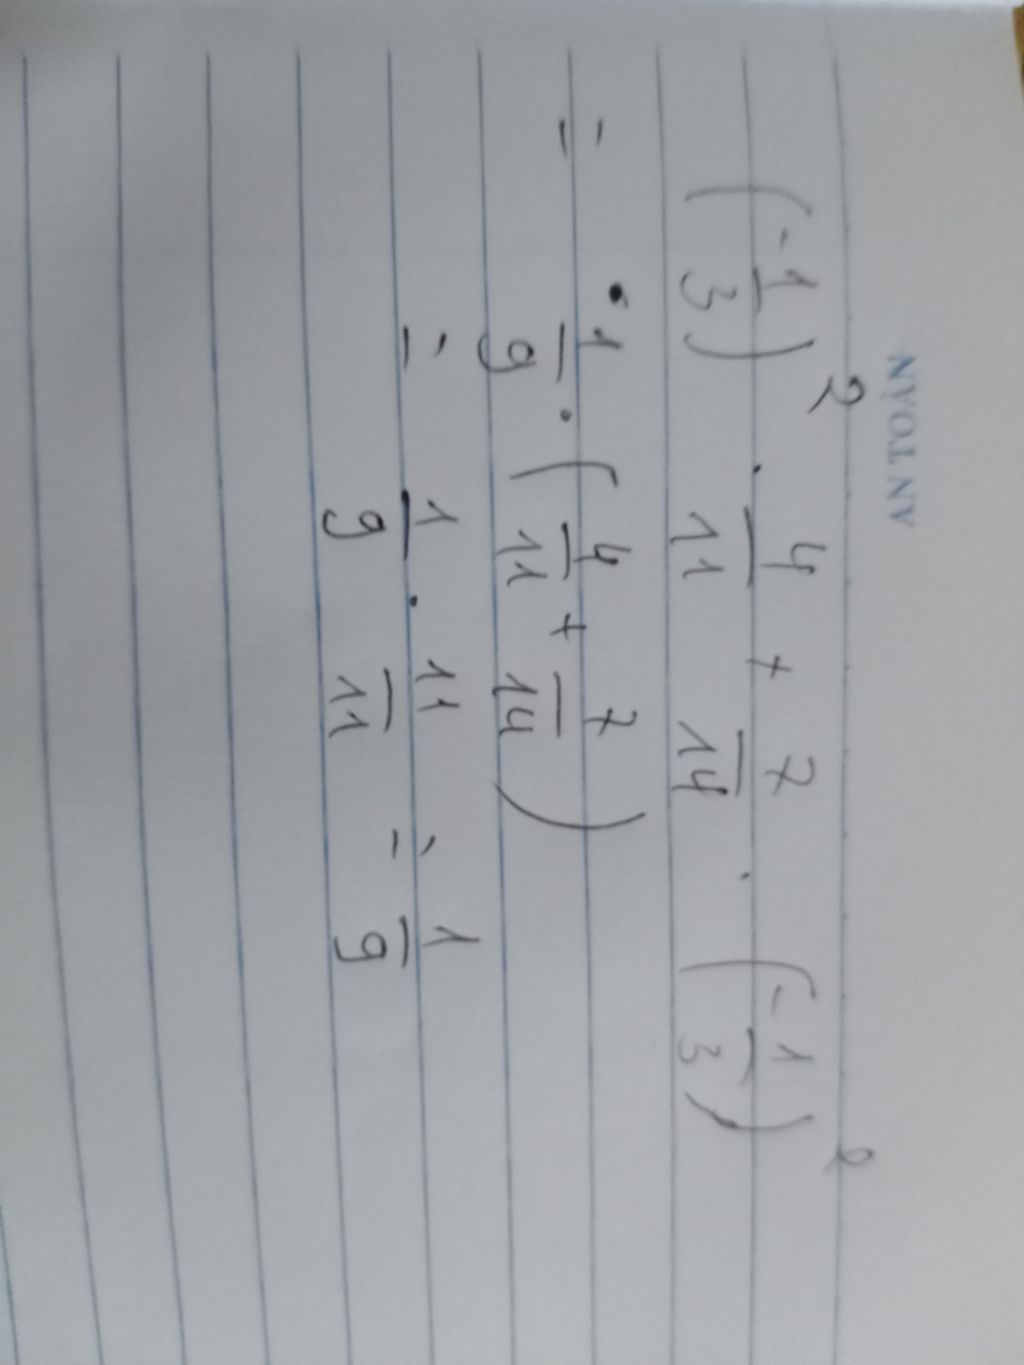 AN TOÀN
(-1/3)² . 4/11 + 7/14 . (-1/3)²
= 1/9 . (4/11 + 7/14)
= 1/9 . 11/11 = 1/9